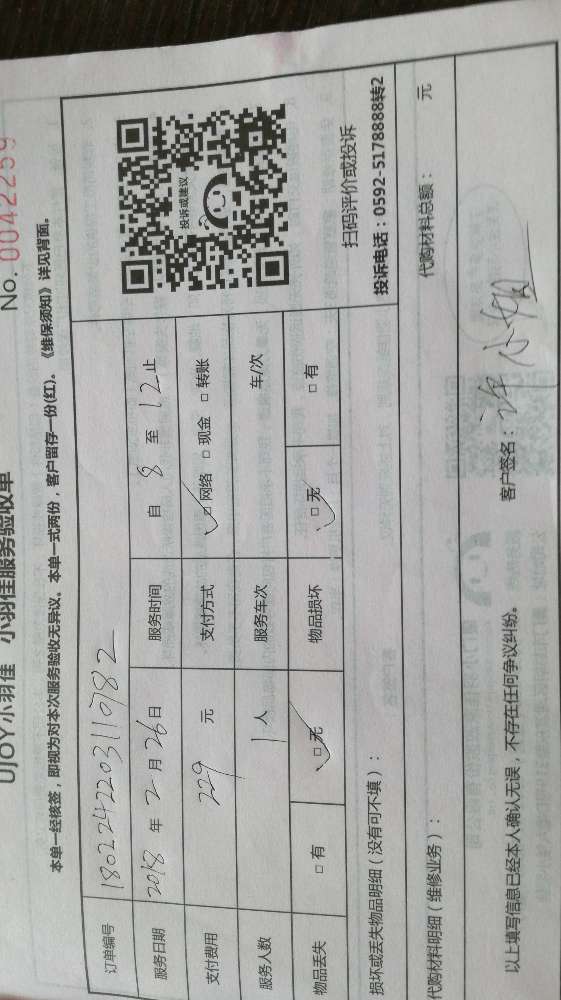 UJOY小羽佳 小羽佳服务验收单
No. 0042259
本单一经核签，即视为对本次服务验收无异议。本单一式两份，客户留存一份(红)。《维保须知》详见背面。
订单编号 1802242203110782
服务日期 2018 年 2 月 26 日 服务时间 自 8 至 12 止
支付费用 229 元 支付方式 ☑网络 □现金 □转账
服务人数 1 人 服务车次 车/次
物品丢失 □有 ☑无 物品损坏 ☑无 □有
投诉或建议
扫码评价或投诉
投诉电话：0592-5178888转2
损坏或丢失物品明细（没有可不填）：
代购材料明细（维修业务）： 代购材料总额： 元
以上填写信息已经本人确认无误，不存在任何争议纠纷。 客户签名：许小姐